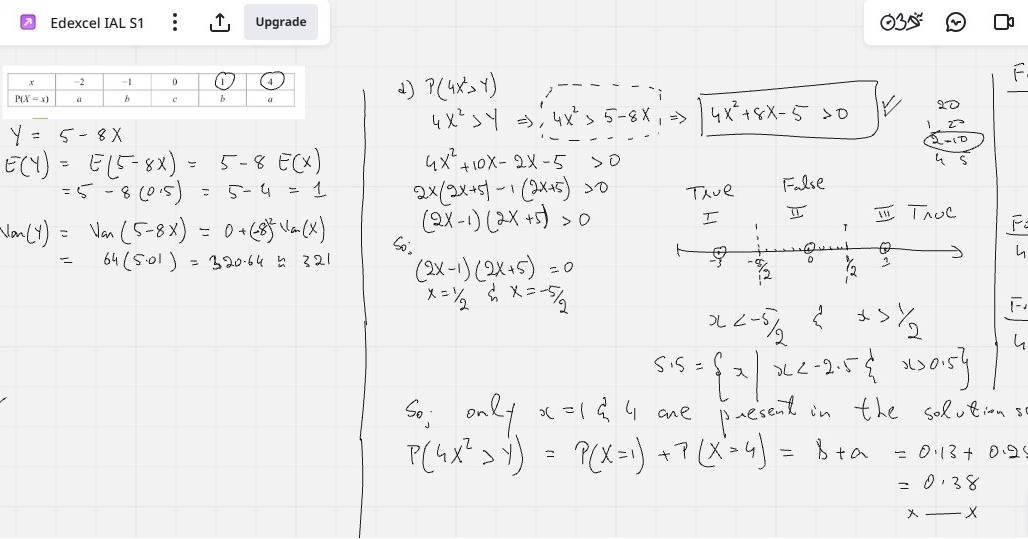 Edexcel IAL S1
Upgrade
x -2 -1 0 1 4
P(X = x) a b c b a
Y = 5 - 8X
E(Y) = E(5-8X) = 5-8 E(X)
= 5 - 8(0.5) = 5-4 = 1
Var(Y) = Var(5-8X) = 0+(-8)² Var(X)
= 64(5.01) = 320.64 ≈ 321
d) P(4X²>Y)
4X² > Y ⇒ 4X² > 5-8X ⇒ 4X²+8X-5 >0 ✓
4X²+10X-2X-5 >0
2X(2X+5)-1(2X+5) >0
(2X-1)(2X+5) >0
So;
(2X-1)(2X+5) =0
X=1/2 & X=-5/2
20
1 20
2-10
4 5
True False
I II III True
-3 -5/2 0 1/2
x < -5/2 & x > 1/2
S.S = {x | x<-2.5 & x>0.5}
So; only x=1 & 4 are present in the solution
P(4X²>Y) = P(X=1) + P(X=4) = b+a = 0.13 +
= 0.38
x — x